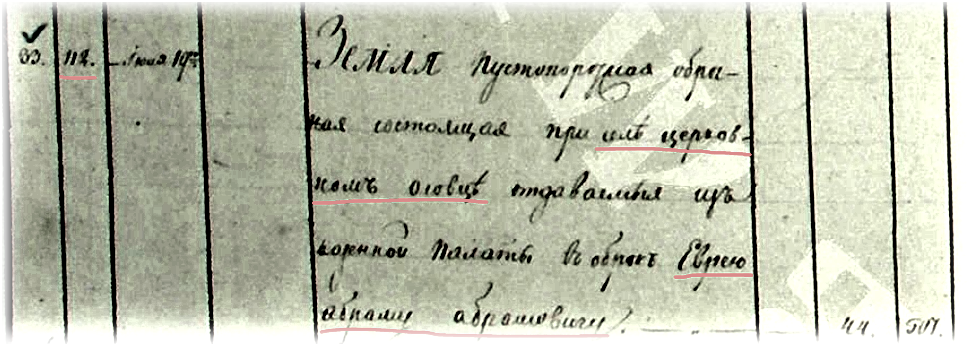 33. 112. Июля 19го ЗЕМЛЯ пустопорожная обро-
ная состоящая при селѣ церков-
номъ осовцѣ отдаваемыя изъ
казенной палаты въ оброкъ Еврею
абраму абрамовичу. 44. 507.